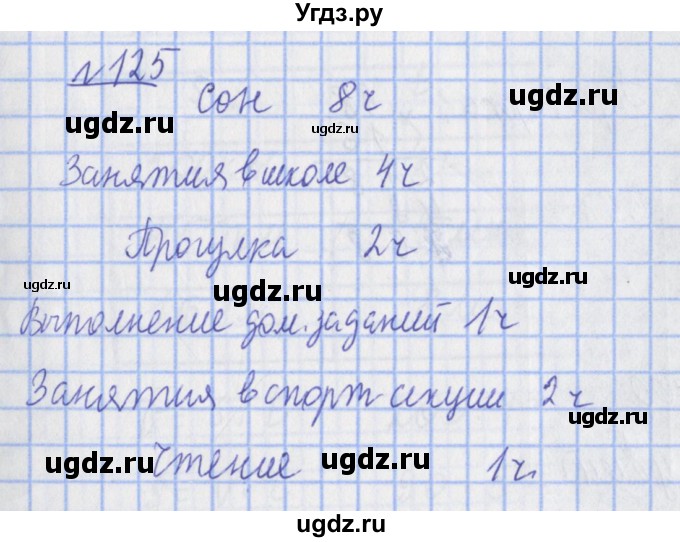 Угдз.ру
№125
ugdz.ru
Сон 8ч
ugdz.ru
ugdz.ru
Занятия в школе 4ч
Прогулка 2ч
ugdz.ru
ugdz.ru
ugdz.ru
Выполнение дом. заданий 1ч
Занятия в спорт-секции 2ч
ugdz.ru
Чтение 1ч.
ugdz.ru
ugdz.ru
ugdz.ru